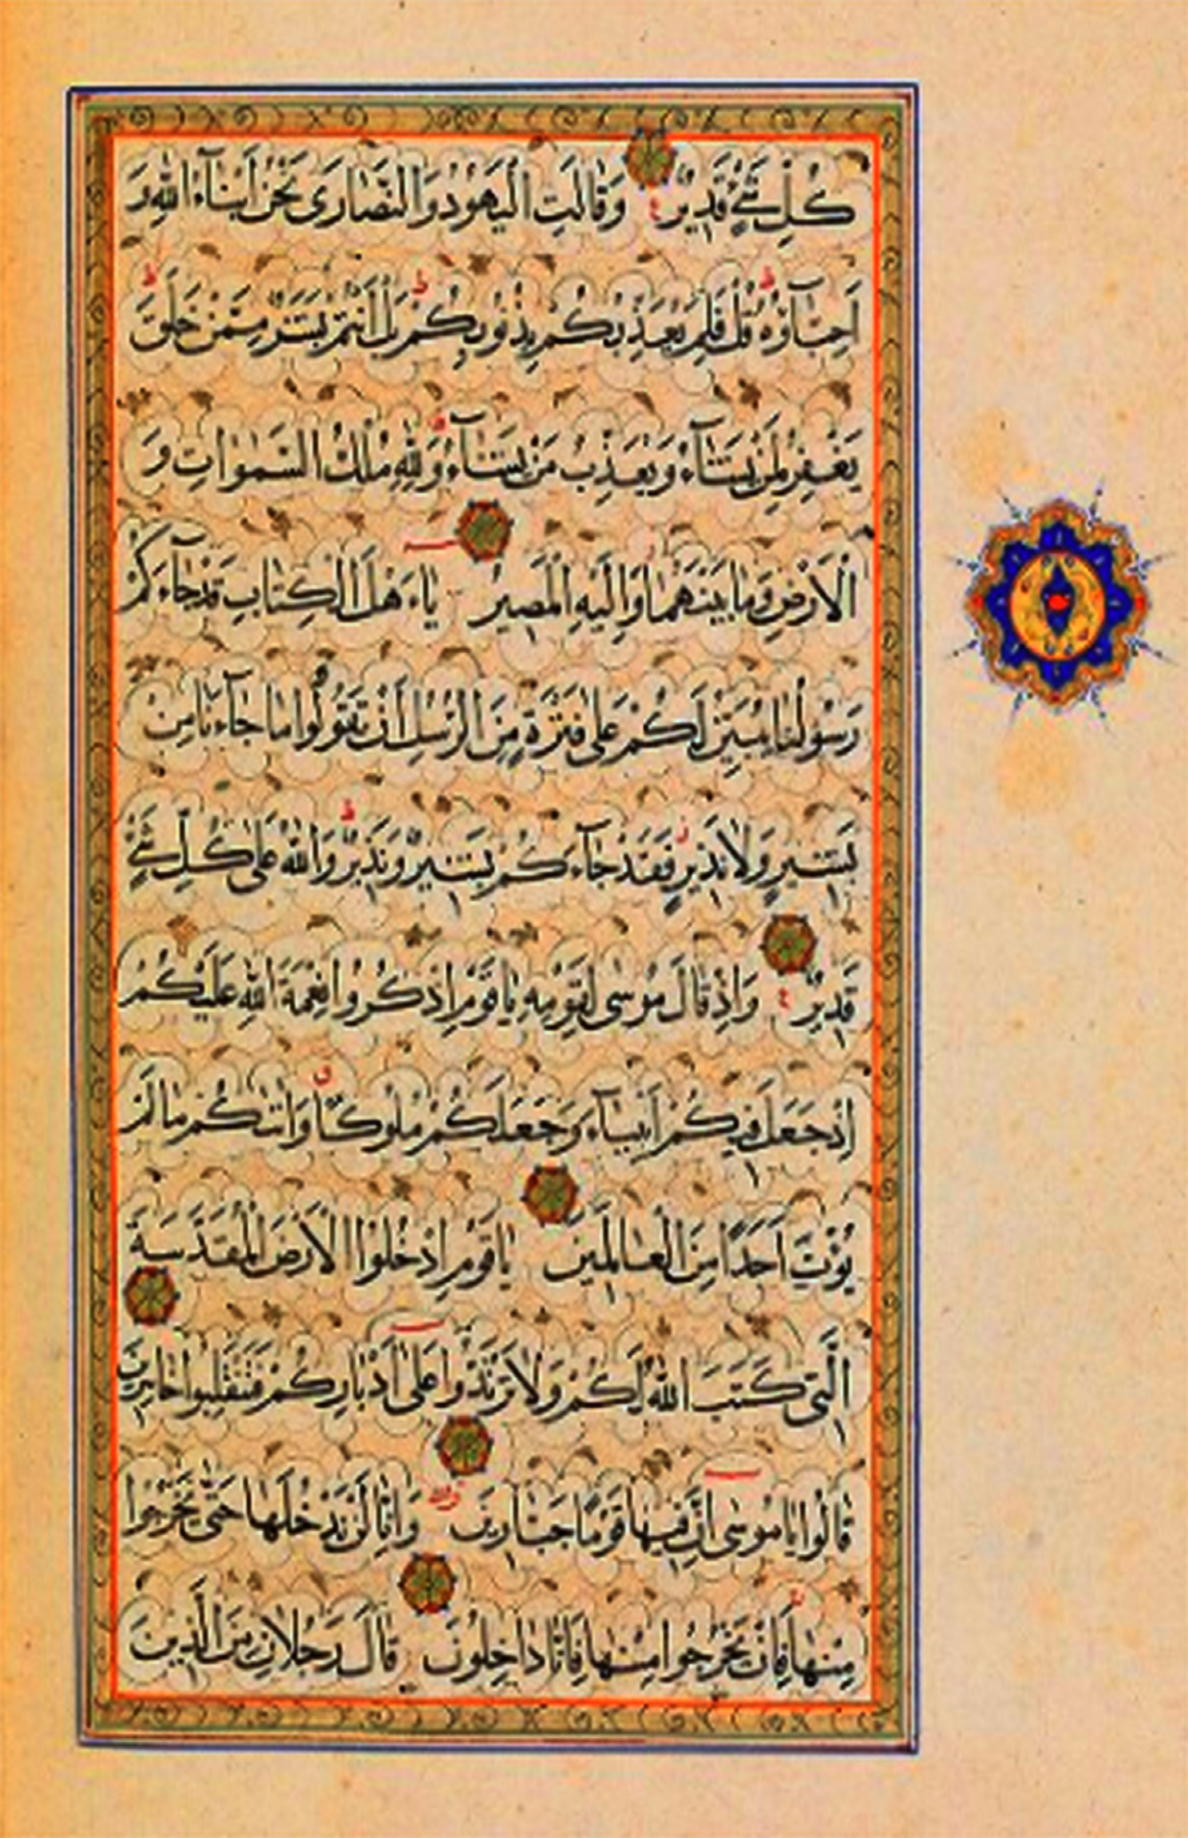 كُلِّ شَيْءٍ قَدِيرٌ وَقَالَتِ الْيَهُودُ وَالنَّصَارَى نَحْنُ أَبْنَاءُ اللهِ وَ
اَحِبَّاؤُهُ قُلْ فَلِمَ يُعَذِّبُكُمْ بِذُنُوبِكُمْ بَلْ اَنْتُمْ بَشَرٌ مِمَّنْ خَلَقَ
يَغْفِرُ لِمَنْ يَشَاءُ وَيُعَذِّبُ مَنْ يَشَاءُ وَلِلّٰهِ مُلْكُ السَّمٰوَاتِ وَ
الْاَرْضِ وَمَا بَيْنَهُمَا وَاِلَيْهِ الْمَصِيرُ يَاءَهْلَ الْكِتَابِ قَدْ جَاءَكُمْ
رَسُولُنَا يُبَيِّنُ لَكُمْ عَلَى فَتْرَةٍ مِنَ الرُّسُلِ اَنْ تَقُولُوا مَا جَاءَنَا مِنْ
بَشِيرٍ وَلَا نَذِيرٍ فَقَدْ جَاءَكُمْ بَشِيرٌ وَنَذِيرٌ وَاللهُ عَلَى كُلِّ شَيْءٍ
قَدِيرٌ وَاِذْ قَالَ مُوسَى لِقَوْمِهِ يَاقَوْمِ اذْكُرُوا نِعْمَةَ اللهِ عَلَيْكُمْ
اِذْ جَعَلَ فِيكُمْ اَنْبِيَاءَ وَجَعَلَكُمْ مُلُوكًا وَاٰتٰكُمْ مَا لَمْ
يُؤْتِ اَحَدًا مِنَ الْعَالَمِينَ يَاقَوْمِ ادْخُلُوا الْاَرْضَ الْمُقَدَّسَةَ
الَّتِي كَتَبَ اللهُ لَكُمْ وَلَا تَرْتَدُّوا عَلَى اَدْبَارِكُمْ فَتَنْقَلِبُوا خَاسِرِينَ
قَالُوا يَامُوسَى اِنَّ فِيهَا قَوْمًا جَبَّارِينَ وَاِنَّا لَنْ نَدْخُلَهَا حَتَّى يَخْرُجُوا
مِنْهَا فَاِنْ يَخْرُجُوا مِنْهَا فَاِنَّا دَاخِلُونَ قَالَ رَجُلَانِ مِنَ الَّذِينَ